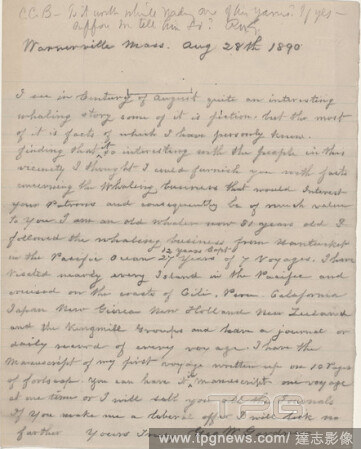 CCB— Is it worth while reading one of his yarns? If yes—
affirm or tell him so? RWG
Warnerville Mass. Aug 28th 1890
I see in Century of August quite an interesting
whaling story some of it is fiction. but the most
of it is facts of which I have personly know.
finding that its interesting with the people in this
vicinity I thought I could furnish you with facts
concerning the Whaling business that would Interest
your Patrons and consequently be of much value
to you I am an old whaler now 80 years old I
followed the whaling business from Nantucket
12 years Capt
in the Pacific Ocean 27 years of 7 Voyages. I have
Visited nearly every Island in the Pacific and
cruised on the coasts of Cili. Peru. California
Japan New Guinea New Holland New Zealand
and the Kingmill Groups and have a journal or
daily record of every voyage. I have the
Manuscript of my first voyage written up on 70 Pages
of foolscap. you can have it manuscript one voyage
at one term or I will sell you all the journals
If you make me a liberal offer I will look no
farther Yours Truly
TPG
www.tpgnews.com/達志影像